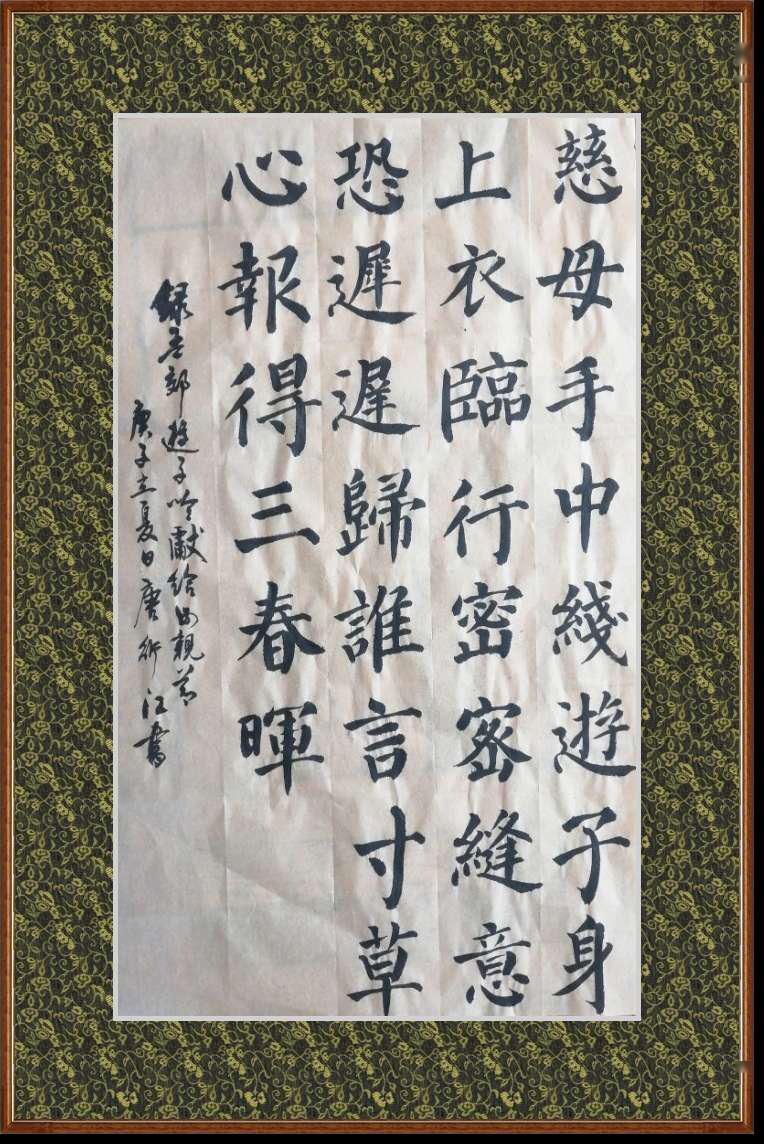 慈母手中綫遊子身
上衣臨行密密縫意
恐遲遲歸誰言寸草
心報得三春暉
録孟郊遊子吟獻給母親节
庚子立夏日唐江書